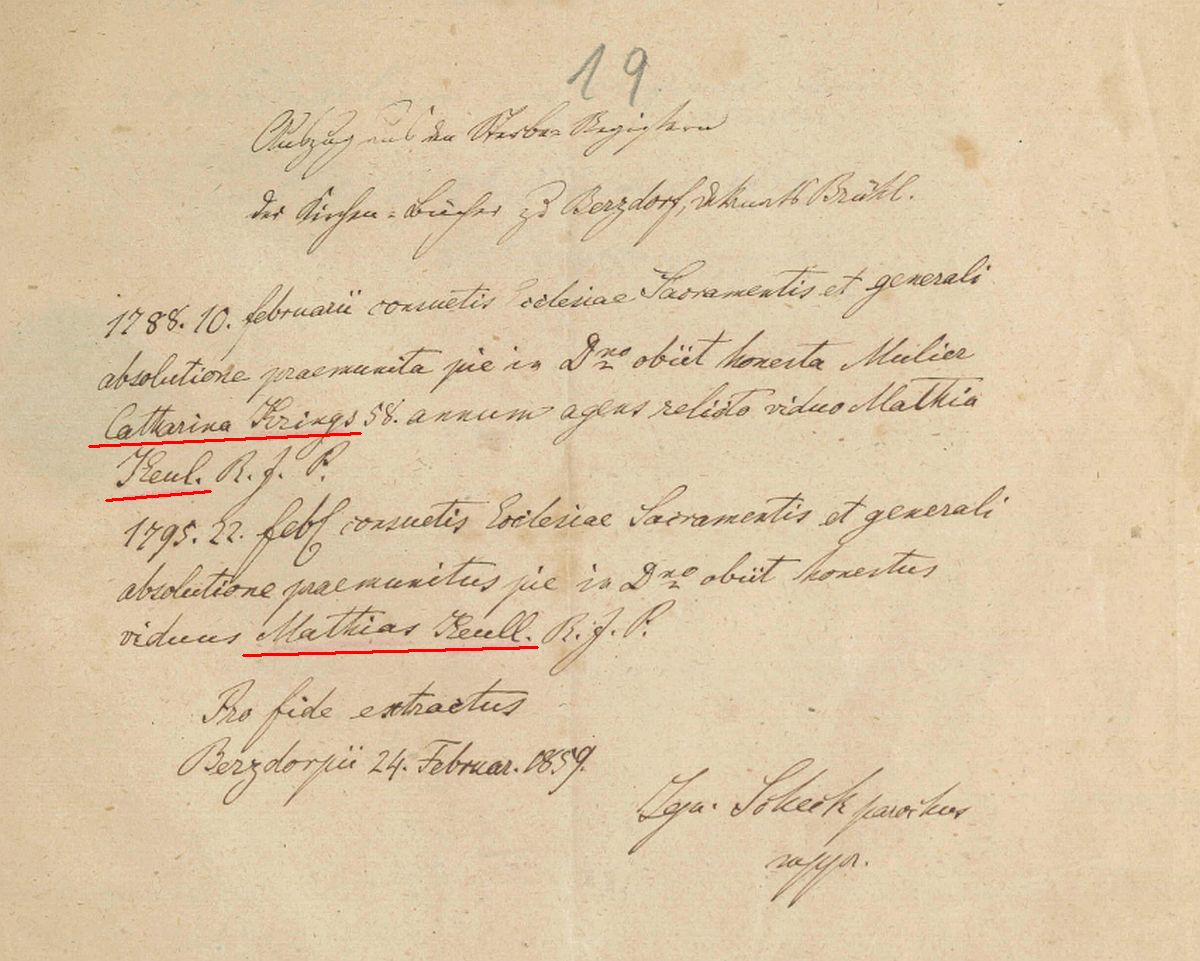 19
Auszug aus den Sterbe= Registern
der Kirchen=bücher zu Berzdorf, Dekanats Brühl.
1788. 10. februarii consuetis Ecclesiae Sacramentis et generali
absolutione praemunita pie in Dno obiit honesta Mulier
Catharina Krings 58. annum agens relicto viduo Mathia
Keul. R. J. P.
1795. 22. feb consuetis Ecclesiae Sacramentis et generali
absolutione praemunitus pie in Dno obiit honestus
viduus Mathias Keull. R. J. P.
Pro fide extractus
Berzdorpii 24. Februar. 1859.
parochus
mppr.